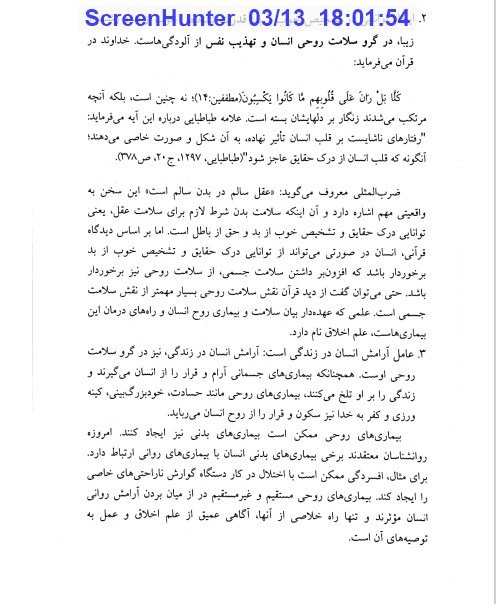 ScreenHunter 03/13 18:01:54
۲.
زیبا، در گرو سلامت روحی انسان و تهذیب نفس از آلودگی‌هاست. خداوند در
قرآن می‌فرماید:
کَلَّا بَلْ رَانَ عَلَى قُلُوبِهِم مَّا کَانُوا یَکْسِبُونَ(مطففین:۱۴)؛ نه چنین است، بلکه آنچه
مرتکب می‌شدند زنگار بر دلهایشان بسته است. علامه طباطبایی درباره این آیه می‌فرماید:
"رفتارهای ناشایست بر قلب انسان تأثیر نهاده، به آن شکل و صورت خاصی می‌دهند؛
آنگونه که قلب انسان از درک حقایق عاجز شود"(طباطبایی، ۱۲۹۷، ج۲۰، ص۳۷۸).
ضرب‌المثلی معروف می‌گوید: «عقل سالم در بدن سالم است» این سخن به
واقعیتی مهم اشاره دارد و آن اینکه سلامت بدن شرط لازم برای سلامت عقل، یعنی
توانایی درک حقایق و تشخیص خوب از بد و حق از باطل است. اما بر اساس دیدگاه
قرآنی، انسان در صورتی می‌تواند از توانایی درک حقایق و تشخیص خوب از بد
برخوردار باشد که افزون‌بر داشتن سلامت جسمی، از سلامت روحی نیز برخوردار
باشد. حتی می‌توان گفت از دید قرآن نقش سلامت روحی بسیار مهمتر از نقش سلامت
جسمی است. علمی که عهده‌دار بیان سلامت و بیماری روح انسان و راه‌های درمان این
بیماری‌هاست، علم اخلاق نام دارد.
۳. عامل آرامش انسان در زندگی است: آرامش انسان در زندگی، نیز در گرو سلامت
روحی اوست. همچنانکه بیماری‌های جسمانی آرام و قرار را از انسان می‌گیرند و
زندگی را بر او تلخ می‌کنند، بیماری‌های روحی مانند حسادت، خودبزرگ‌بینی، کینه
ورزی و کفر به خدا نیز سکون و قرار را از روح انسان می‌رباید.
بیماری‌های روحی ممکن است بیماری‌های بدنی نیز ایجاد کنند. امروزه
روانشناسان معتقدند برخی بیماری‌های بدنی انسان با بیماری‌های روانی ارتباط دارد.
برای مثال، افسردگی ممکن است با اختلال در کار دستگاه گوارش ناراحتی‌های خاصی
را ایجاد کند. بیماری‌های روحی مستقیم و غیرمستقیم در از میان بردن آرامش روانی
انسان مؤثرند و تنها راه خلاصی از آنها، آگاهی عمیق از علم اخلاق و عمل به
توصیه‌های آن است.